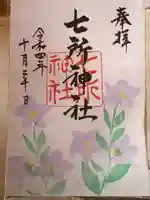 奉拝
七所神社
七所
神社
令和四年
十月二日